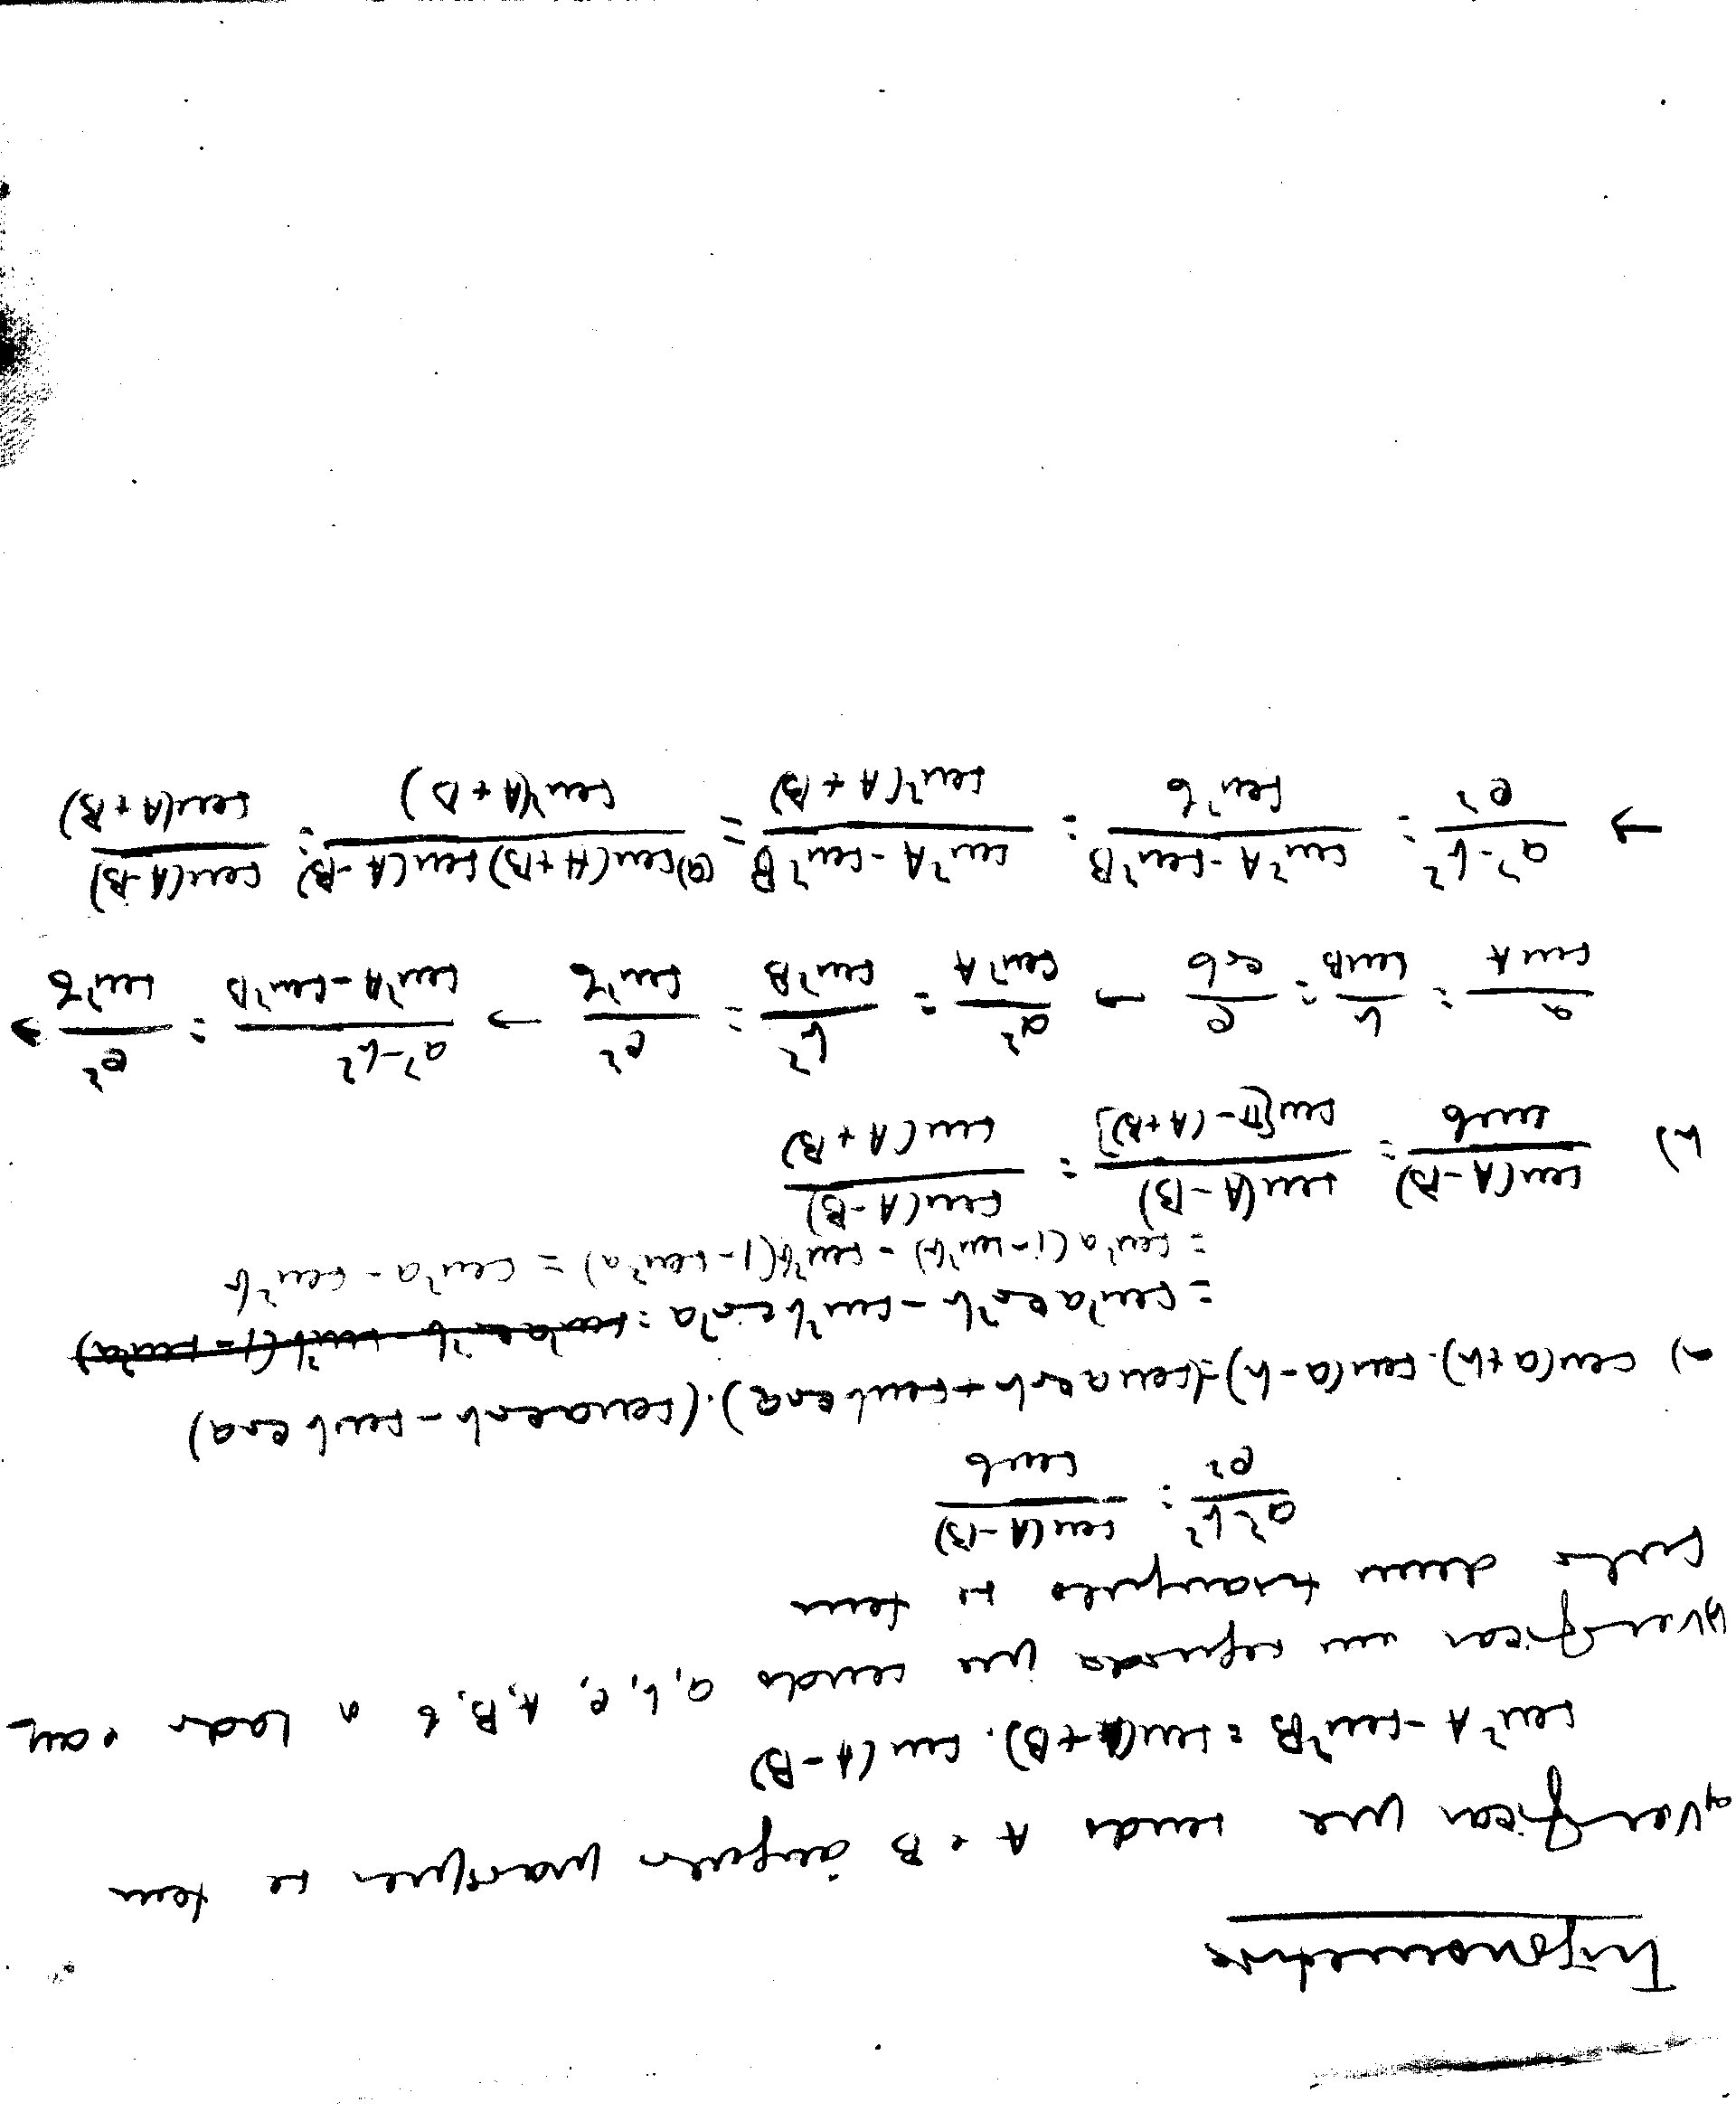 Trigonometria
a) verifican que sendo A e B ângulos quaisquer se tem
sen²A - sen²B = sen(A+B). sen(A-B)
b) verifican em seguida que sendo a, b, c, A, B, C os lados e ang
dum triangulo se tem
a²-b² / c² = sen(A-B) / sen C
a) sen(a+b). sen(a-b) = (sen a cos b + sen b cos a).(sen a cos b - sen b cos a)
= sen²a cos²b - sen²b cos²a =
= sen²a (1-sen²b) - sen²b(1-sen²a) = sen²a - sen²b
b) sen(A-B) / sen C = sen(A-B) / sen[π-(A+B)] = sen(A-B) / sen(A+B)
a / sen A = b / sen B = c / sen C → a² / sen²A = b² / sen²B = c² / sen²C → a²-b² / sen²A-sen²B = c² / sen²C →
→ a²-b² / c² = sen²A-sen²B / sen²C = sen²A-sen²B / sen²(A+B) = (a) sen(A+B) sen(A-B) / sen²(A+B) = sen(A-B) / sen(A+B)